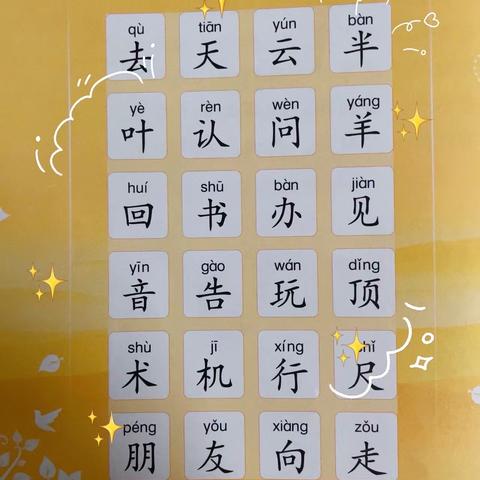 qù tiān yún bàn
去 天 云 半
yè rèn wèn yáng
叶 认 问 羊
huí shū bàn jiàn
回 书 办 见
yīn gào wán dǐng
音 告 玩 顶
shù jī xíng chǐ
术 机 行 尺
péng yǒu xiàng zǒu
朋 友 向 走